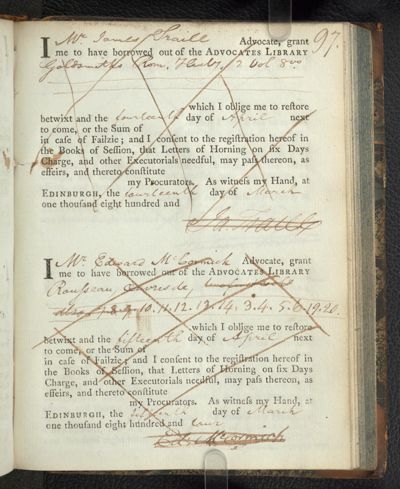 97.
I Mr. James Traill Advocate, grant
me to have borrowed out of the ADVOCATES LIBRARY
Goldsmiths Rom. History 2 Vol 8vo
which I oblige me to reſtore
betwixt and the fourteenth day of April next
to come, or the Sum of
in caſe of Failzie; and I conſent to the regiſtration hereof in
the Books of Seſſion, that Letters of Horning on ſix Days
Charge, and other Executorials needful, may paſs thereon, as
effeirs, and thereto conſtitute
my Procurators. As witneſs my Hand, at
EDINBURGH, the fourteenth day of March
one thouſand eight hundred and
Ja: Traill
I Mr. Edward McCormick Advocate, grant
me to have borrowed out of the ADVOCATES LIBRARY
Rousseau,
8.9.10.11.12.13.14.3.4.5.6.19.20.
which I oblige me to reſtore
betwixt and the fifteenth day of April next
to come, or the Sum of
in caſe of Failzie; and I conſent to the regiſtration hereof in
the Books of Seſſion, that Letters of Horning on ſix Days
Charge, and other Executorials needful, may paſs thereon, as
effeirs, and thereto conſtitute
my Procurators. As witneſs my Hand, at
EDINBURGH, the fifteenth day of March
one thouſand eight hundred and four
Ed. McCormick